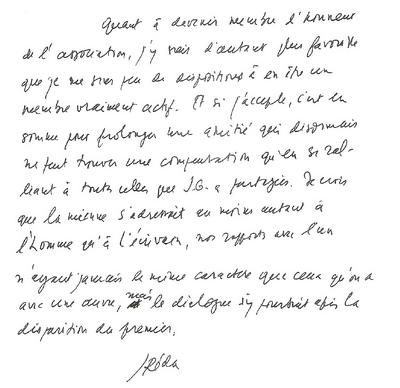 Quant à devenir membre d'honneur
de l'association, j'y suis d'autant plus favorable
que je me sens peu de dispositions à en être un
membre vraiment actif. Et si j'accepte, c'est en
somme pour prolonger une amitié qui désormais
ne peut trouver une compensation qu'en se ral-
liant à toutes celles que J.G. a partagées. Je crois
que la mienne s'adressait au moins autant à
l'homme qu'à l'écrivain, nos rapports avec l'un
n'ayant jamais le même caractère que ceux qu'on a
avec une œuvre, mais le dialogue s'y poursuit après la
disparition du premier.
J Réda